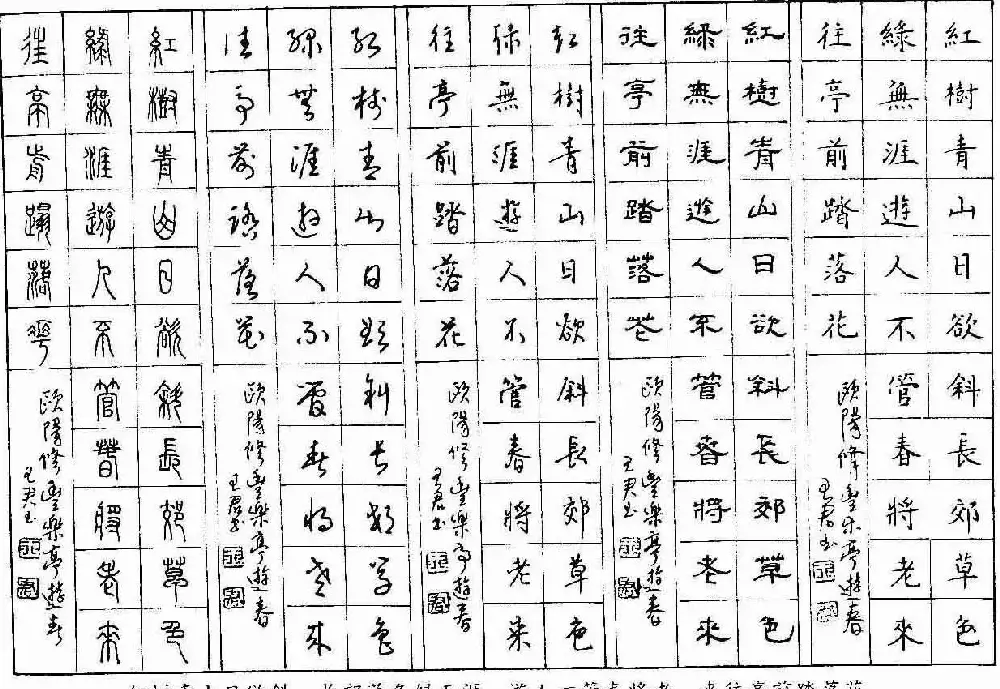 紅樹青山日欲斜長郊草色
綠無涯遊人不管春將老來
往亭前踏落花
欧陽修豐樂亭遊春
紅樹青山日欲斜長郊草色
綠無涯遊人不管春將老來
往亭前踏落花
欧陽修豐樂亭遊春
紅樹青山日欲斜長郊草色
綠無涯遊人不管春將老來
往亭前踏落花
欧陽修豐樂亭遊春
紅樹青山日欲斜長郊草色
綠無涯遊人不管春將老來
往亭前踏落花
欧陽修豐樂亭遊春
紅樹青山日欲斜長郊草色
綠無涯遊人不管春將老來
往亭前踏落花
欧陽修豐樂亭遊春